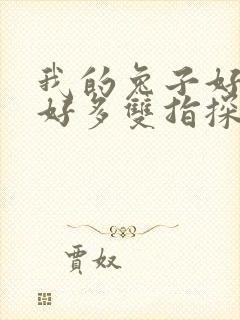 我的兔子好
好多雙指探
賈奴